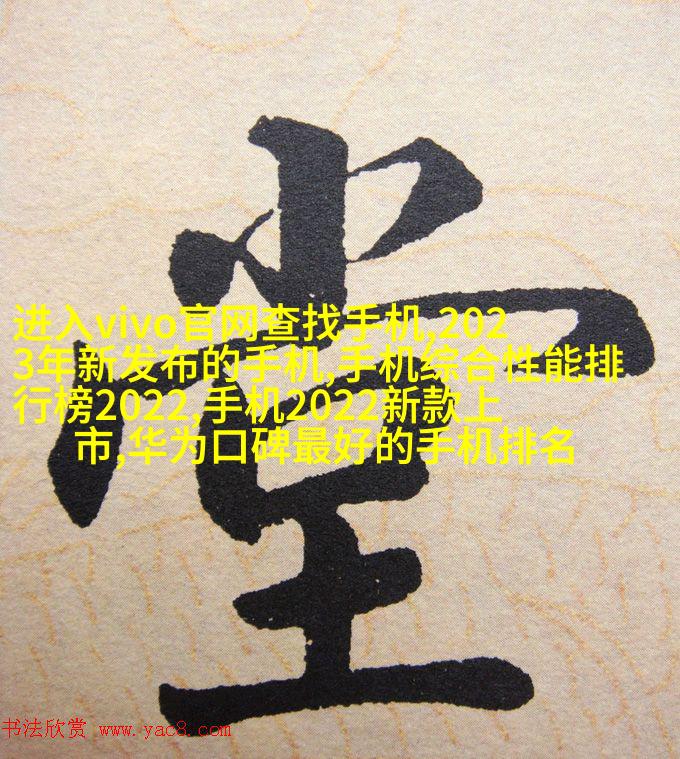 堂
进入vivo官网查找手机,202
3年新发布的手机,手机综合性能排
行榜2022,手机2022新款上
市,华为口碑最好的手机排名
书法欣赏 www.yac8.com